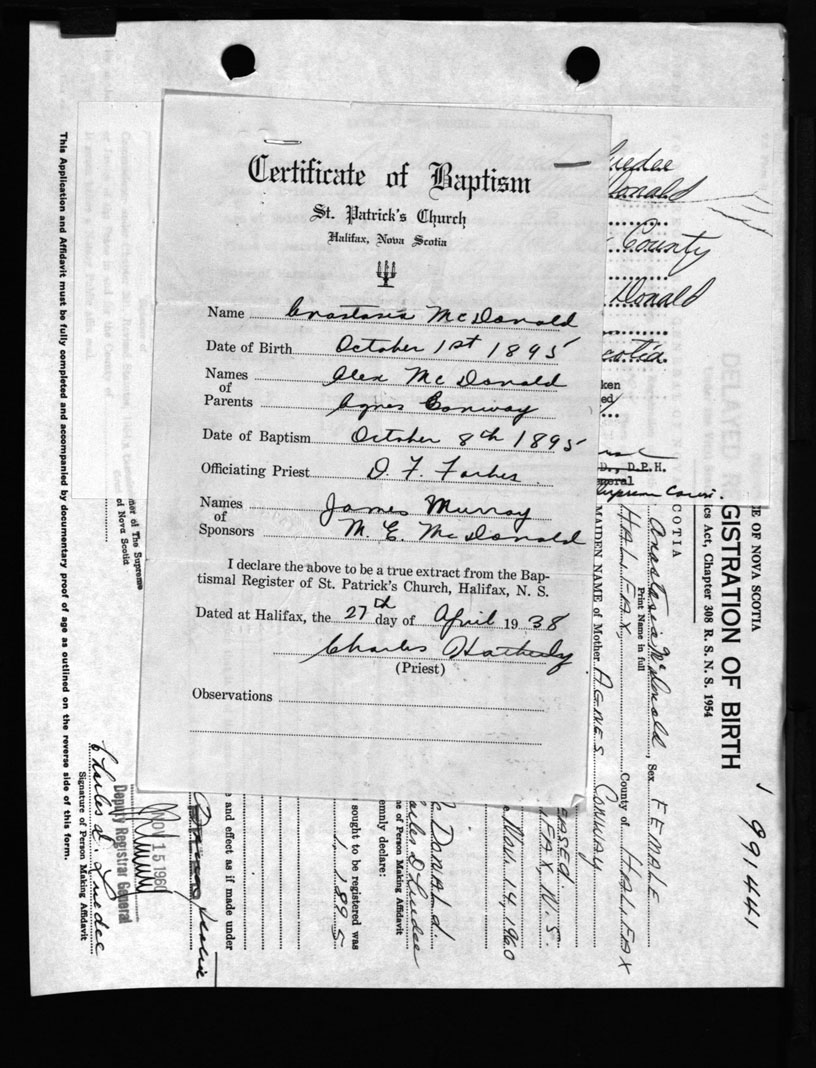 Certificate of Baptism
St. Patrick's Church
Halifax, Nova Scotia
Name Anastasia McDonald
Date of Birth October 1st 1895
Names of Parents Alex McDonald
Agnes Conway
Date of Baptism October 8th 1895
Officiating Priest D. F. Forbes.
Names of Sponsors James Murray
M. E. McDonald
I declare the above to be a true extract from the Bap-
tismal Register of St. Patrick's Church, Halifax, N. S.
Dated at Halifax, the 27th day of April 1938
Charles
(Priest)
Observations
County
Donald
cotia.
ken
ed/
D., D.P.H.
neral
Supreme Court.
DELAYED RE
E OF NOVA SCOTIA
GISTRATION OF BIRTH
cs Act, Chapter 308 R. S. N. S. 1954
991441
COTIA
Anastasia McDonald, Sex FEMALE
Print Name in full
HALIFAX, County of HALIFAX
MAIDEN NAME of Mother AGNES CONWAY
EASED.
FAX, N. S.
Nov. 14, 1960
c DONALD
ne of Person Making Affidavit
ennly declare:
sought to be registered was
1, 1895
e and effect as if made under
NOV 15 1960
Deputy Registrar General
Charles D. Luedee
Signature of Person Making Affidavit
ner of The Supreme
of Nova Scotia
This Application and Affidavit must be fully completed and accompanied by documentary proof of age as outlined on the reverse side of this form.